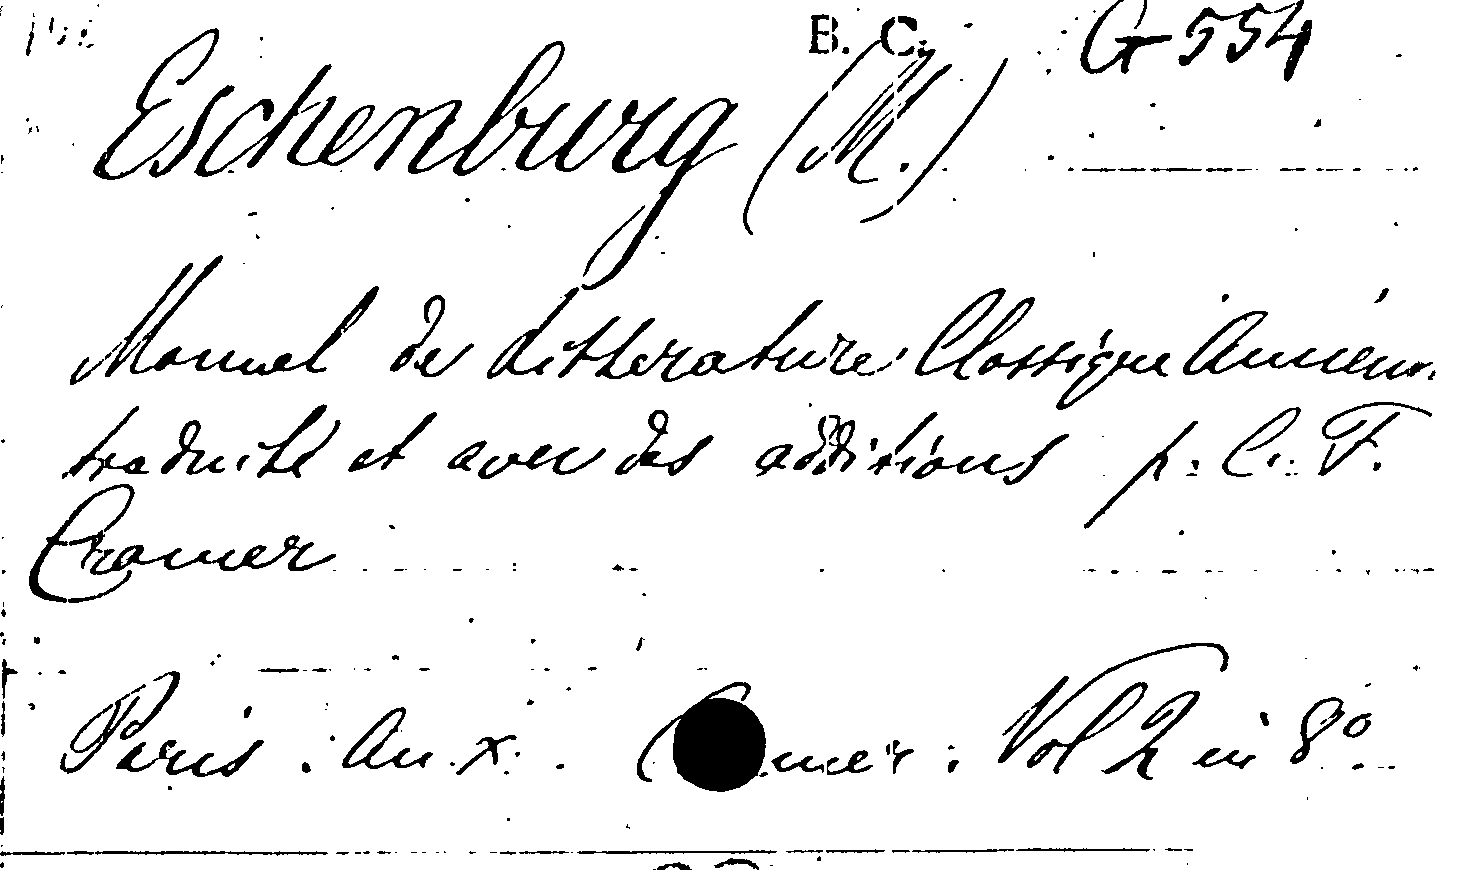 B. C. G 554
Eschenburg (M.)
Manuel de Littérature Classique Ancienn.
traduite et avec des additions p. C. F.
Cramer
Paris. An x. Vol 2 in 8°.